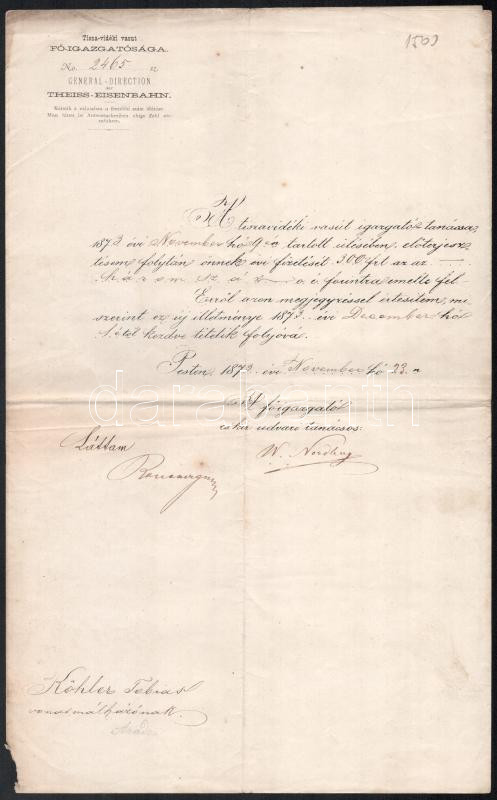 1503
Tisza-vidéki vasut
FŐIGAZGATÓSÁGA.
No. 2465 sz
GENERAL-DIRECTION
der
THEISS-EISENBAHN.
Kéretik a válaszban a fentebbi szám idézése
Man bittet im Antwortschreiben obige Zahl
A tiszavidéki vasút igazgató tanácsa
1873 évi November hó 9én tartott ülésében, előterjesz
tésem folytán önnek évi fizetését 300 frt az az
három száz o. é. forintra emelte fel.
Erről azon megjegyzéssel értesítem, mi
szerint ez új illetménye 1873. évi December hó
1étől kezdve tétetik folyóvá.
Pesten, 1873 évi November hó 23.n
A főigazgató
cs kir udvari tanácsos:
W. Nördling
Láttam
Köhler Tobias
vonatmálházónak
Arad